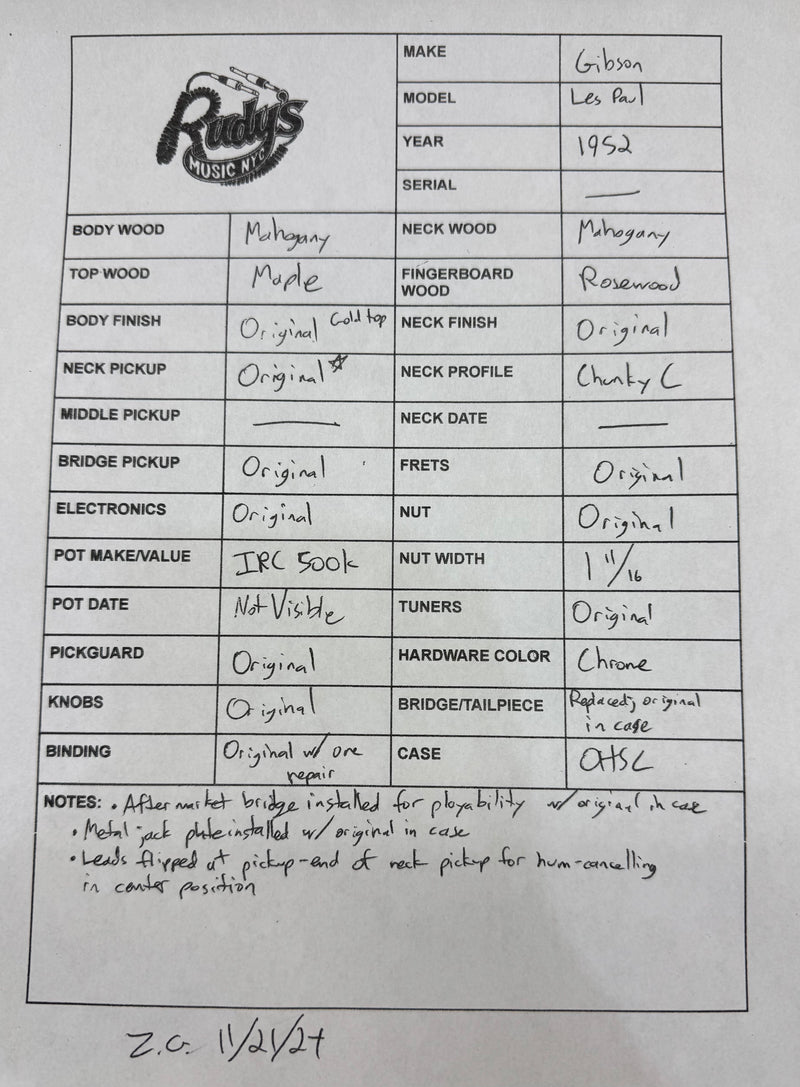 Rudy's
MUSIC NYC
MAKE Gibson
MODEL Les Paul
YEAR 1952
SERIAL —
BODY WOOD Mahogany NECK WOOD Mahogany
TOP WOOD Maple FINGERBOARD WOOD Rosewood
BODY FINISH Original Gold top NECK FINISH Original
NECK PICKUP Original☆ NECK PROFILE Chunky C
MIDDLE PICKUP — NECK DATE —
BRIDGE PICKUP Original FRETS Original
ELECTRONICS Original NUT Original
POT MAKE/VALUE IRC 500k NUT WIDTH 1 11/16
POT DATE Not Visible TUNERS Original
PICKGUARD Original HARDWARE COLOR Chrome
KNOBS Original BRIDGE/TAILPIECE Replaced; original in case
BINDING Original w/ one repair CASE OHSC
NOTES: • Aftermarket bridge installed for playability w/ original in case
• Metal jack plate installed w/ original in case
• Leads flipped at pickup-end of neck pickup for hum-cancelling
in center position
Z.G. 11/21/24